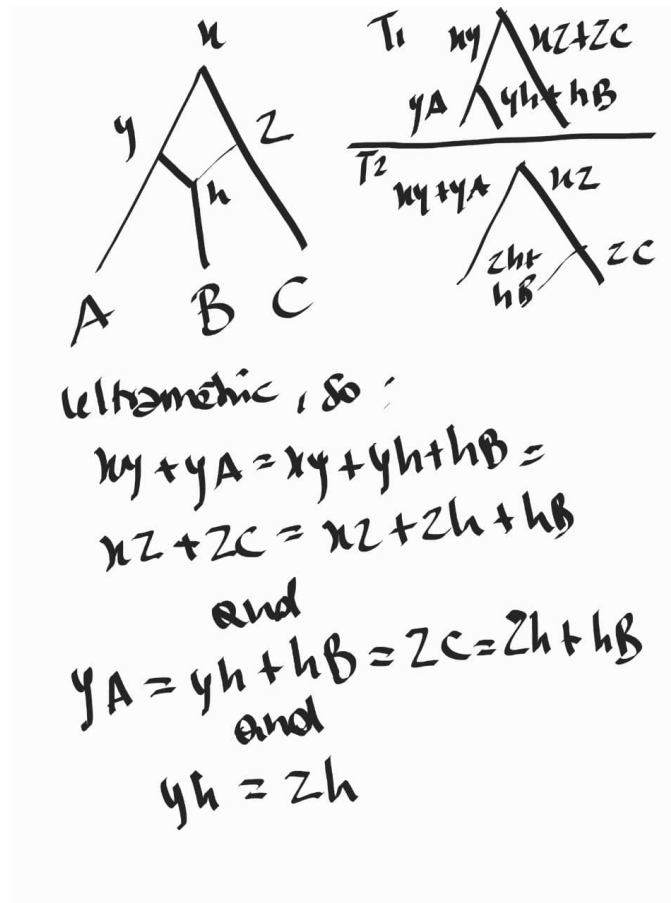 x
y
z
h
A B C
T1 xy xz+zc
yA yh+hB
T2
xy+yA xz
zh+
hB
zc
Ultrametric, so :
xy+yA=xy+yh+hB=
xz+zc=xz+zh+hB
and
yA=yh+hB=zc=zh+hB
and
yh=zh